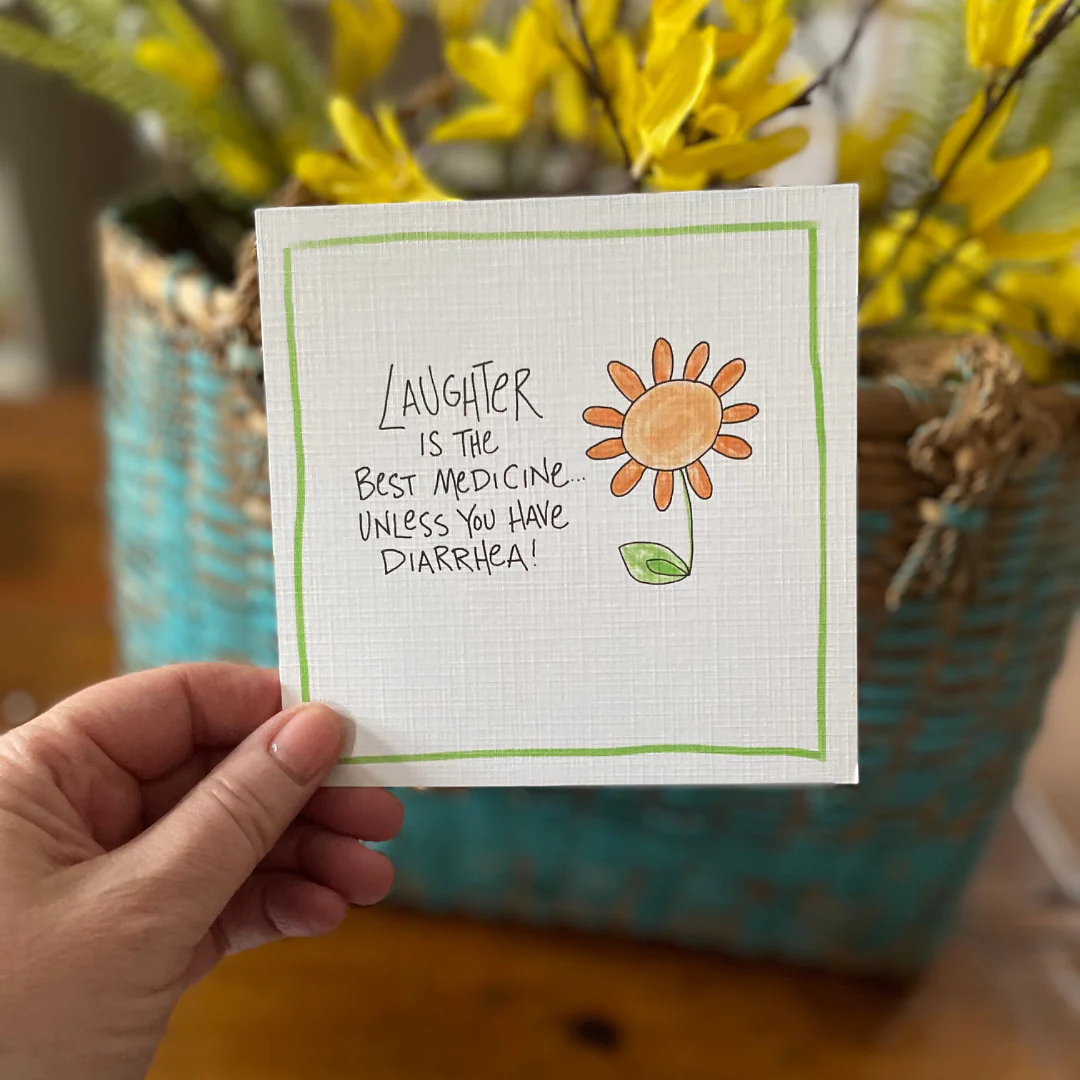 LAUGHTER
IS THE
BEST MEDICINE...
UNLESS YOU HAVE
DIARRHEA!